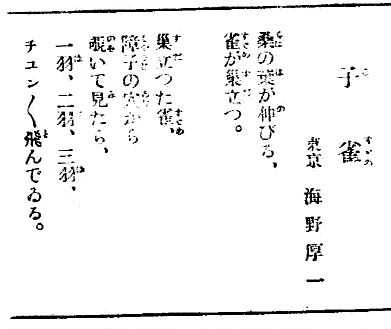 子雀
東京 海野厚一
桑の葉が伸びる、
雀が巣立つ。
巣立つた雀、
障子の穴から
覗いて見たら、
一羽、二羽、三羽、
チユン〱飛んでゐる。